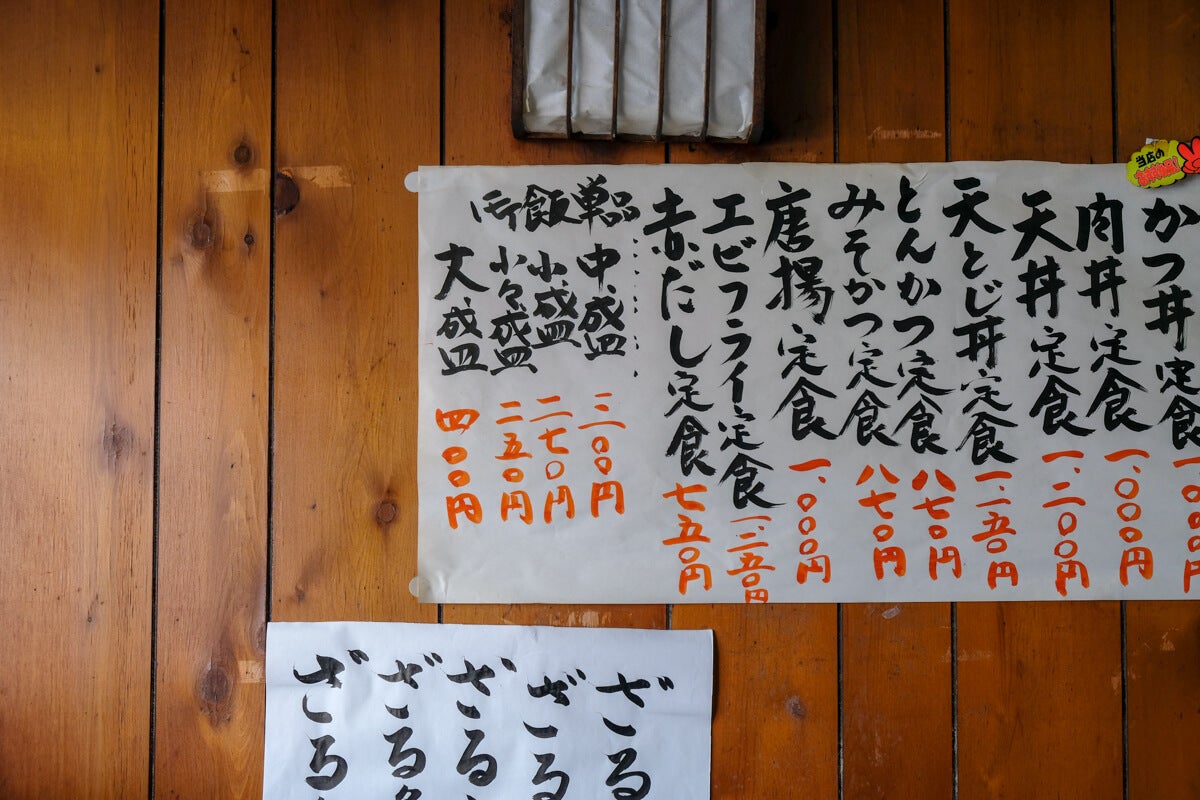 当店の
かつ丼定食
肉丼定食 一、〇〇〇円
天丼定食 一、二〇〇円
天とじ丼定食 一、二五〇円
とんかつ定食 八七〇円
みそかつ定食 八七〇円
唐揚定食 一、〇〇〇円
エビフライ定食 一、二五〇円
赤だし定食 七五〇円
御飯単品
中盛 三〇〇円
小盛 二七〇円
小々盛 二五〇円
大盛 四〇〇円
ざる
ざる
ざる
ざる
ざる